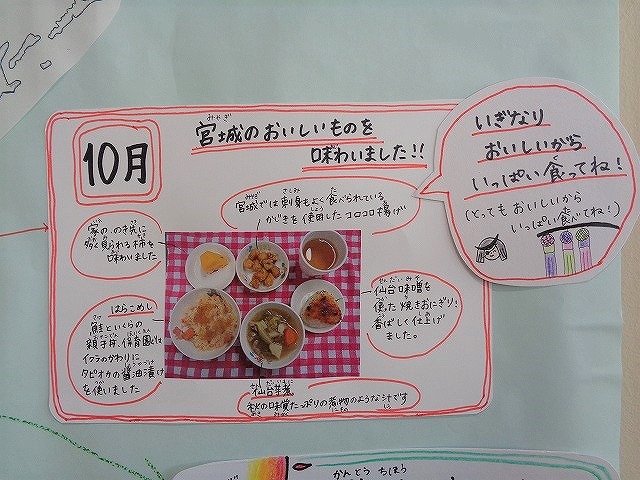 10月
宮城のおいしいものを
味わいました!!
みやぎ
いきなり
おいしいから
いっぱい食ってね!
(とってもおいしいから
いっぱい食べてね!)
宮城では刺身もよく食べられている
かじきを使用したコロコロ揚げ
家の軒先に
多く見られる柿を
味わいました
はらこめし
鮭といくらの
親子丼。保育園では
イクラのかわりに
タピオカの醤油漬け
を使いました
せんだいみそ
仙台味噌を
使った焼きおにぎり!
香ばしく仕上げ
ました。
仙台芋煮
秋の味覚たっぷりの煮物のような汁です
かんとうちほう